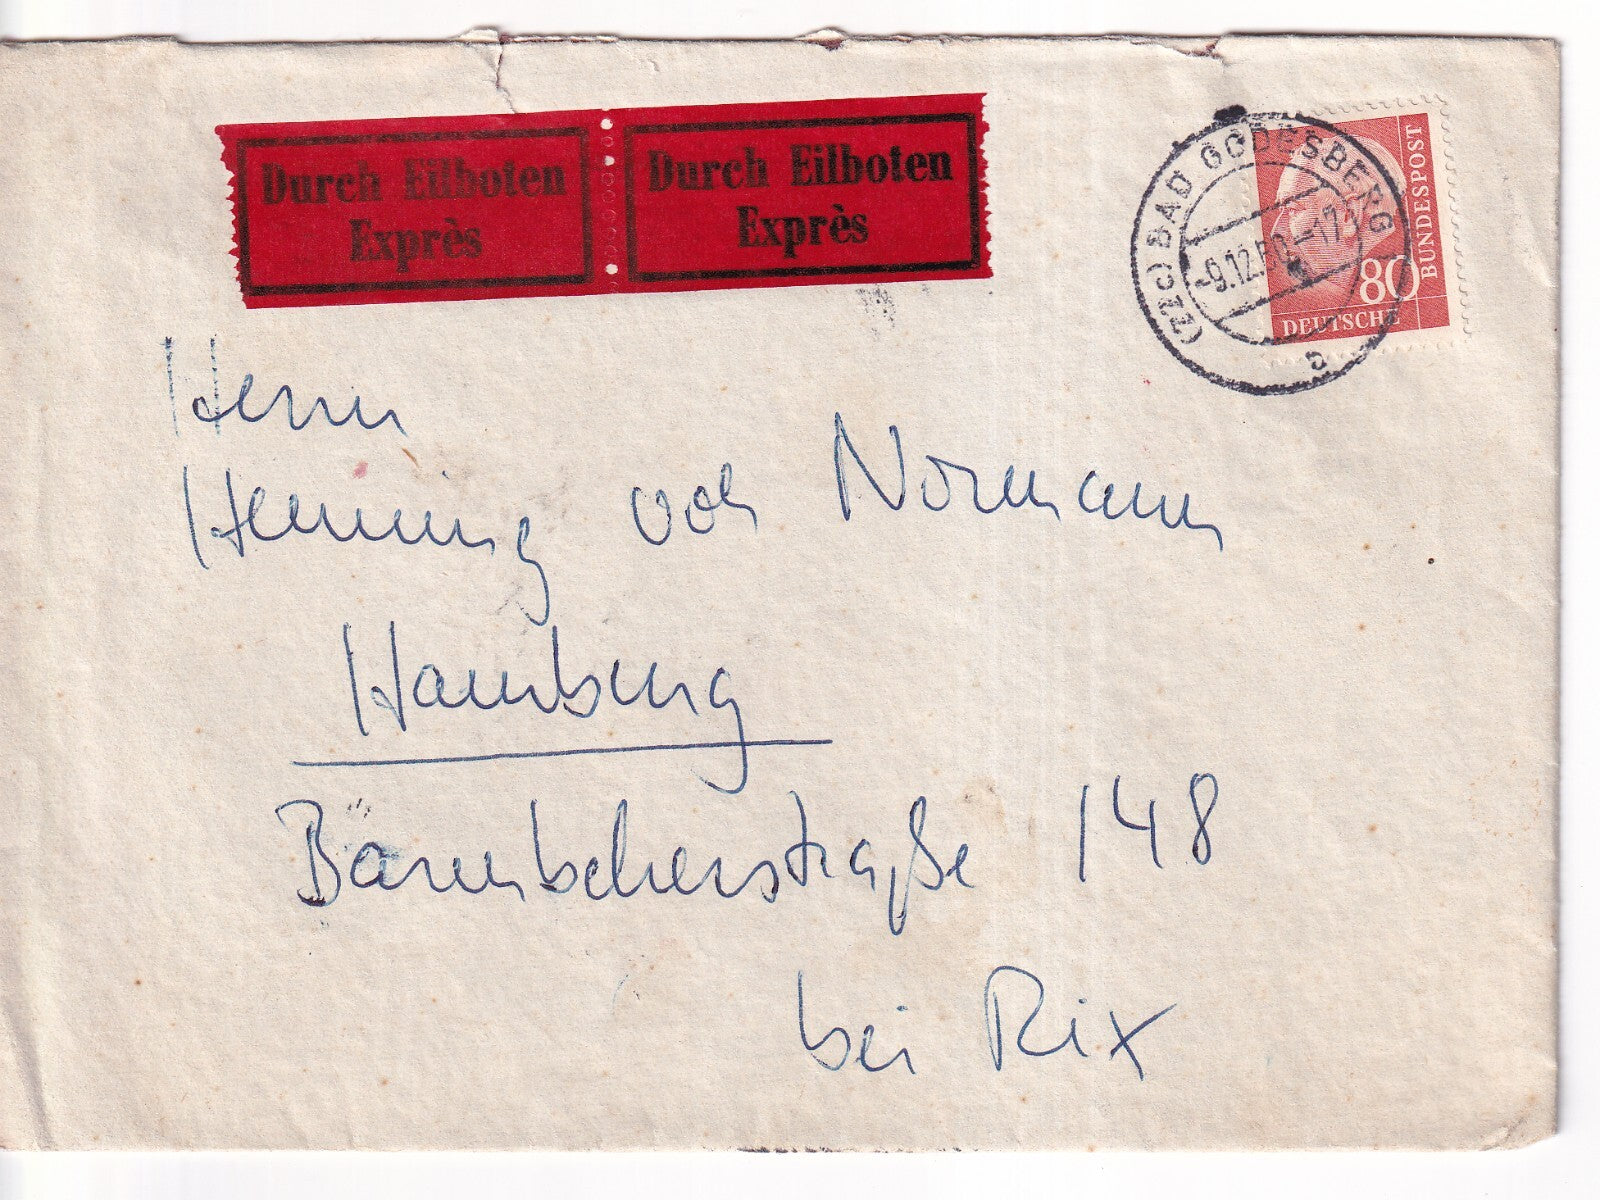 Durch Eilboten
Exprès
Durch Eilboten
Exprès
(22c) BAD GODESBERG
-9.12.5
a
80
DEUTSCHE
BUNDESPOST
Herrn
Henning von Normann
Hamburg
148
bei Rix